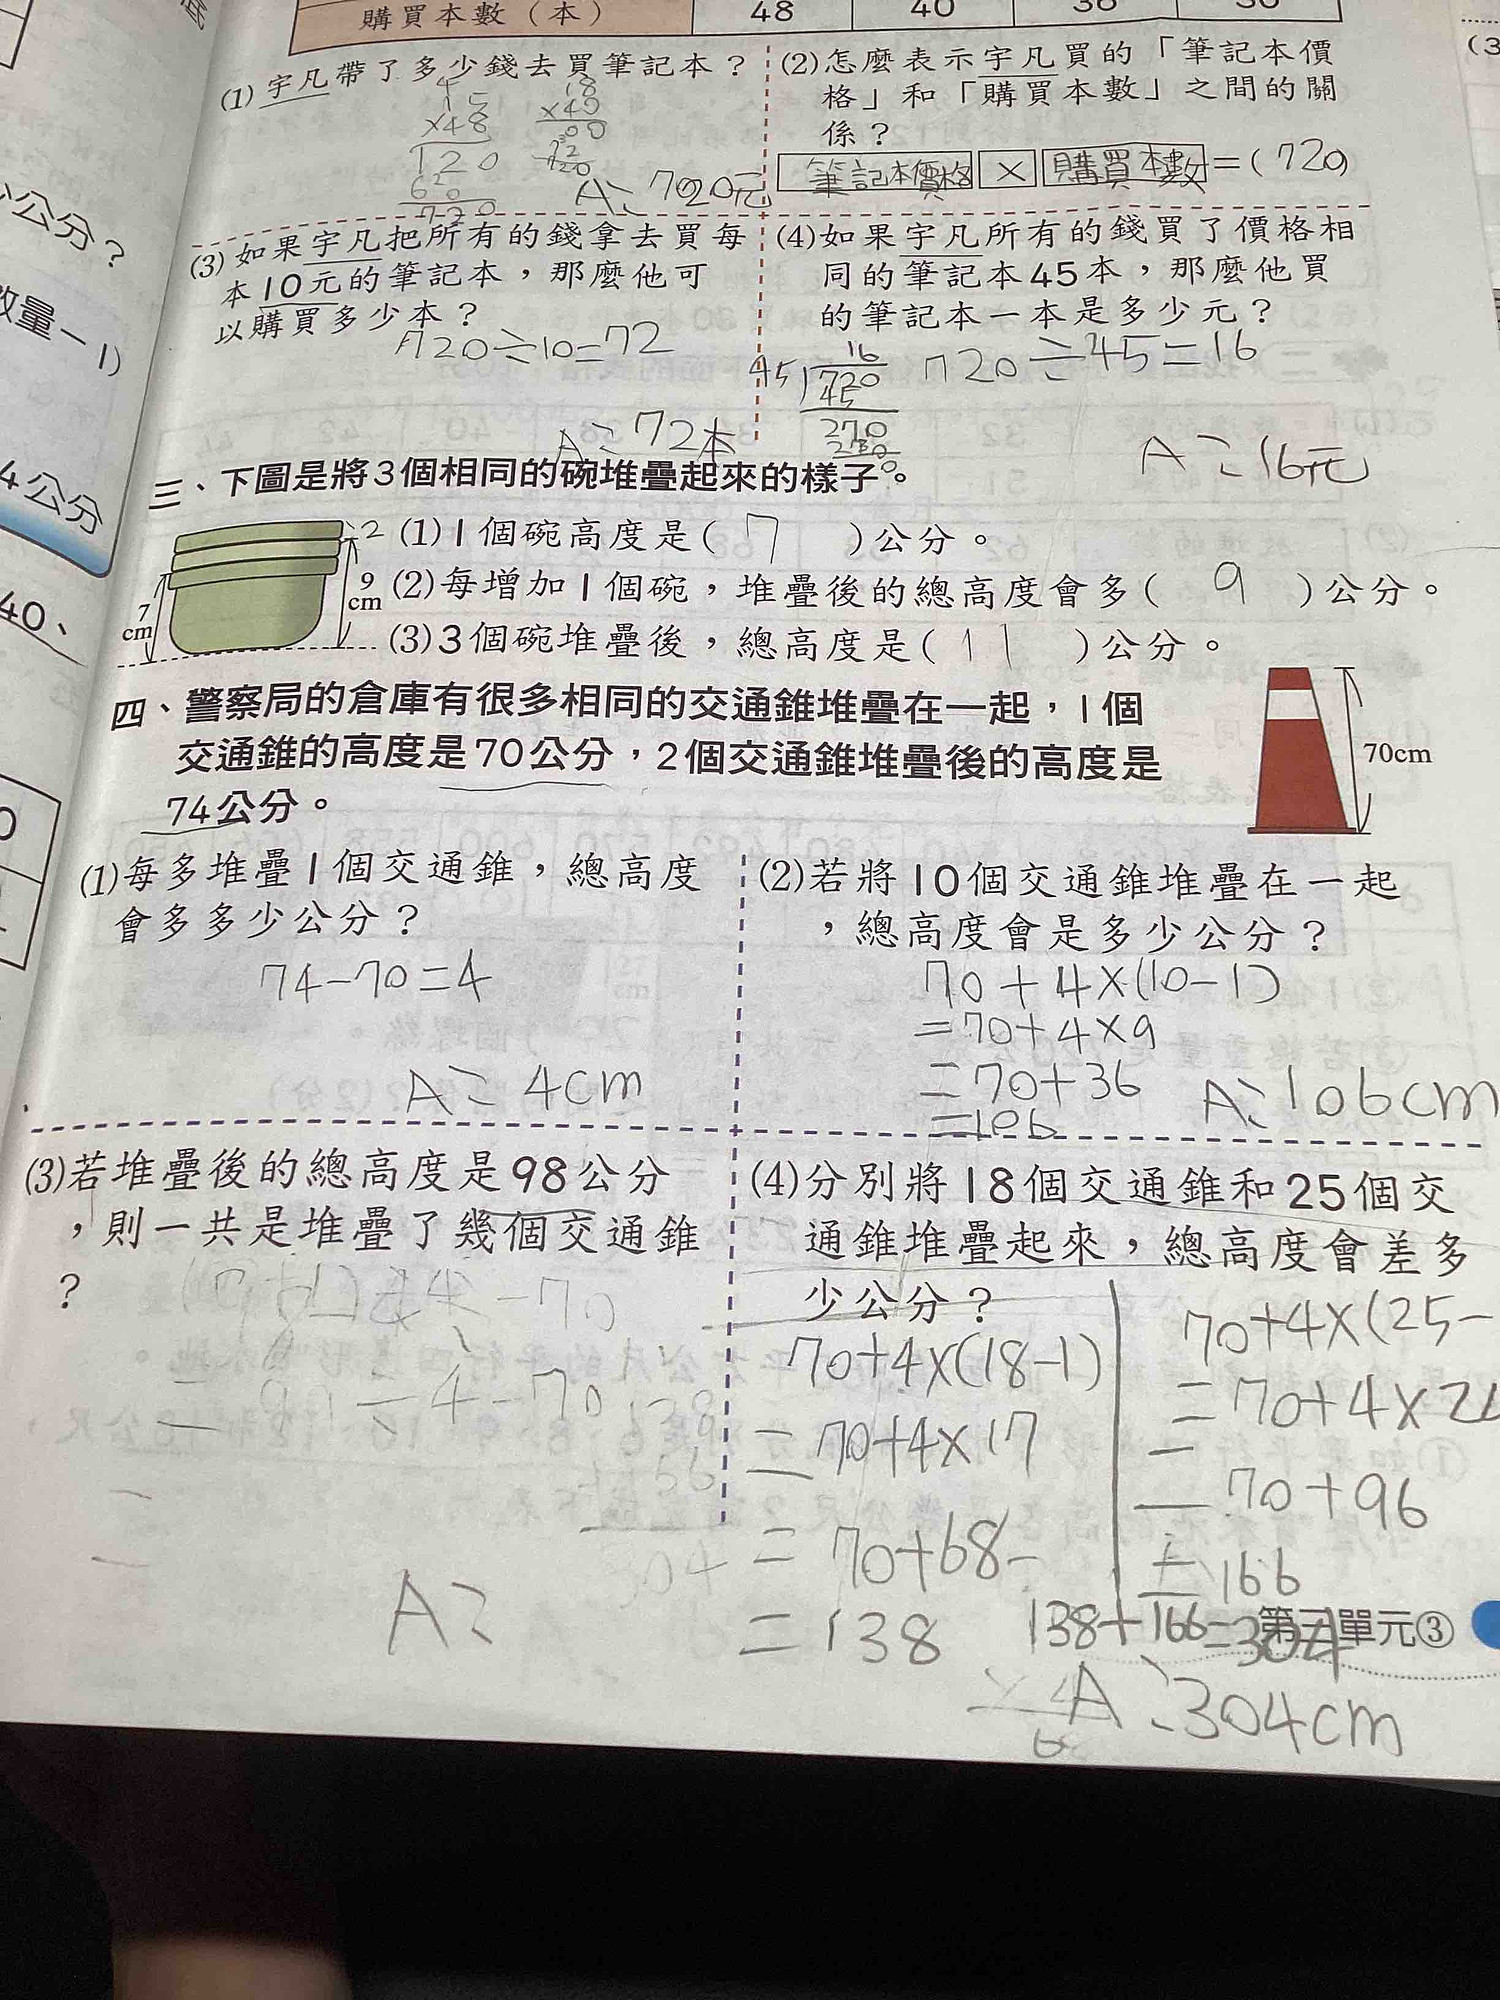 購買本數（本） 48 40 36 30
(1) 宇凡帶了多少錢去買筆記本？
15
×48
120
60
720
18
×40
00
72
720
A：720元
(2)怎麼表示宇凡買的「筆記本價
格」和「購買本數」之間的關
係？
筆記本價格 × 購買本數 =(720)
(3)如果宇凡把所有的錢拿去買每
本10元的筆記本，那麼他可
以購買多少本？
720÷10=72
A：72本
(4)如果宇凡所有的錢買了價格相
同的筆記本45本，那麼他買
的筆記本一本是多少元？
16
45 720
45
270
270
0
720÷45=16
A：16元
三、下圖是將3個相同的碗堆疊起來的樣子。
7
cm
9
cm
2
(1)1個碗高度是( 7 )公分。
(2)每增加1個碗，堆疊後的總高度會多( 9 )公分。
(3)3個碗堆疊後，總高度是( 11 )公分。
四、警察局的倉庫有很多相同的交通錐堆疊在一起，1個
交通錐的高度是70公分，2個交通錐堆疊後的高度是
74公分。
70cm
(1)每多堆疊1個交通錐，總高度
會多多少公分？
74-70=4
A：4cm
(2)若將10個交通錐堆疊在一起
，總高度會是多少公分？
70+4×(10-1)
=70+4×9
=70+36
=106
A：106cm
(3)若堆疊後的總高度是98公分
，則一共是堆疊了幾個交通錐
？
A：
(4)分別將18個交通錐和25個交
通錐堆疊起來，總高度會差多
少公分？
70+4×(18-1)
=70+4×17
=70+68
=138
70+4×(25-
=70+4×24
=70+96
=166
138+166=304
A：304cm
第三單元③
公分？
數量－1)
4公分
40、
(3